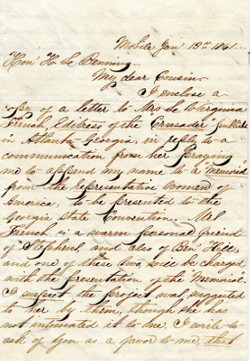 Mobile Jan 13th 1861
Hon H. L. Benning
My dear Cousin
I enclose a
copy of a letter to Mrs L. Virginia
French Editress of the "Crusader" publish
in Atlanta Georgia, in reply to a
communication from her praying
me to append my name to a Memorial
from the representative Women of
America, to be presented to the
Georgia State Convention. Mrs
French is a warm personal friend
of Stephens, and also of Ben Hill
and one of these two will be charged
with the presentation of the Memorial.
I suspect the project was suggested
to her by them, though she has
not intimated it to me. I write to
ask of you as a favor to me, that